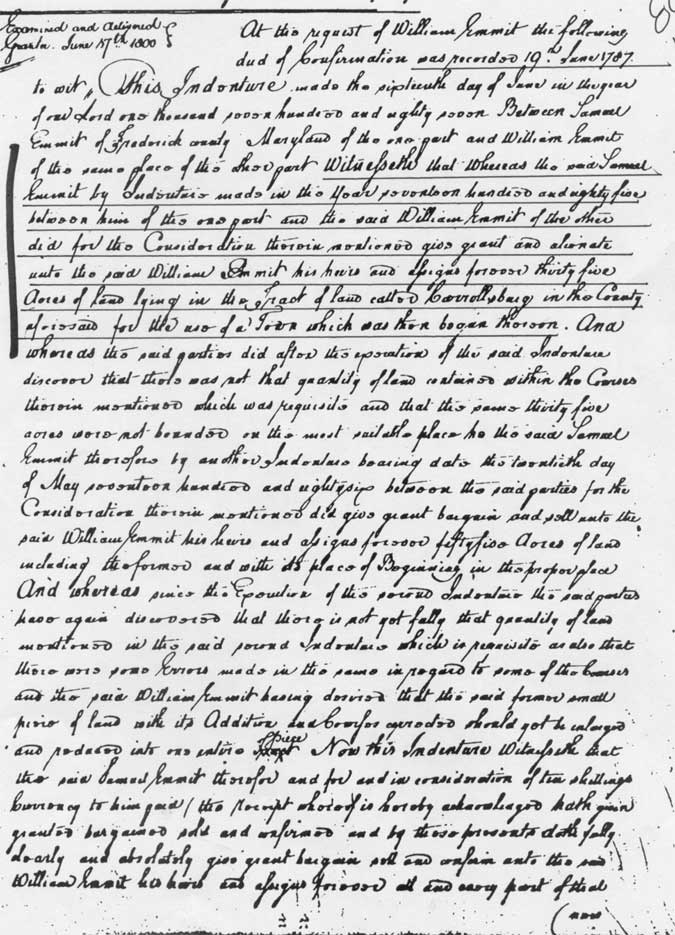 Examined and delivered
Grantee June 17th 1800
At the request of William Emmit the following
deed of Confirmation was recorded 19th June 1787.
to wit, This Indenture made the sixteenth day of June in the year
of our Lord one thousand seven hundred and eighty seven Between Samuel
Emmit of Frederick county Maryland of the one part and William Emmit
of the same place of the other part Witnesseth that Whereas the said Samuel
Emmit by Indenture made in the Year seventeen hundred and eighty five
between him of the one part and the said William Emmit of the other
did for the Consideration therein mentioned give grant and alienate
unto the said William Emmit his heirs and assigns forever thirty five
Acres of land lying in the Tract of land called Carrollsburg in the County
aforesaid for the use of a Town which was then began thereon. And
whereas the said parties did after the execution of the said Indenture
discover that there was not that quantity of land contained within the Courses
therein mentioned which was requisite and that the same thirty five
acres were not bounded on the most suitable place he the said Samuel
Emmit therefore by another Indenture bearing date the twentieth day
of May seventeen hundred and eighty six between the said parties for the
Consideration therein mentioned did give grant bargain and sell unto the
said William Emmit his heirs and assigns forever fifty five Acres of land
including the former and with its place of Beginning in the proper place
And whereas since the Execution of the second Indenture the said parties
have again discovered that there is not yet fully that quantity of land
mentioned in the said second Indenture which is requisite as also that
there were some Errors made in the same in regard to some of the Courses
and the said William Emmit having desired that the said former small
piece of land with its Addition and Courses should yet be enlarged
and reduced into one entire piece Now this Indenture Witnesseth that
the said Samuel Emmit therefor and for and in consideration of ten shillings
Currency to him paid (the receipt whereof is hereby acknowledged hath given
granted bargained sold and confirmed and by these presents doth fully
clearly and absolutely give grant bargain sell and confirm unto the said
William Emmit his heirs and assigns forever all and every part of that
(now